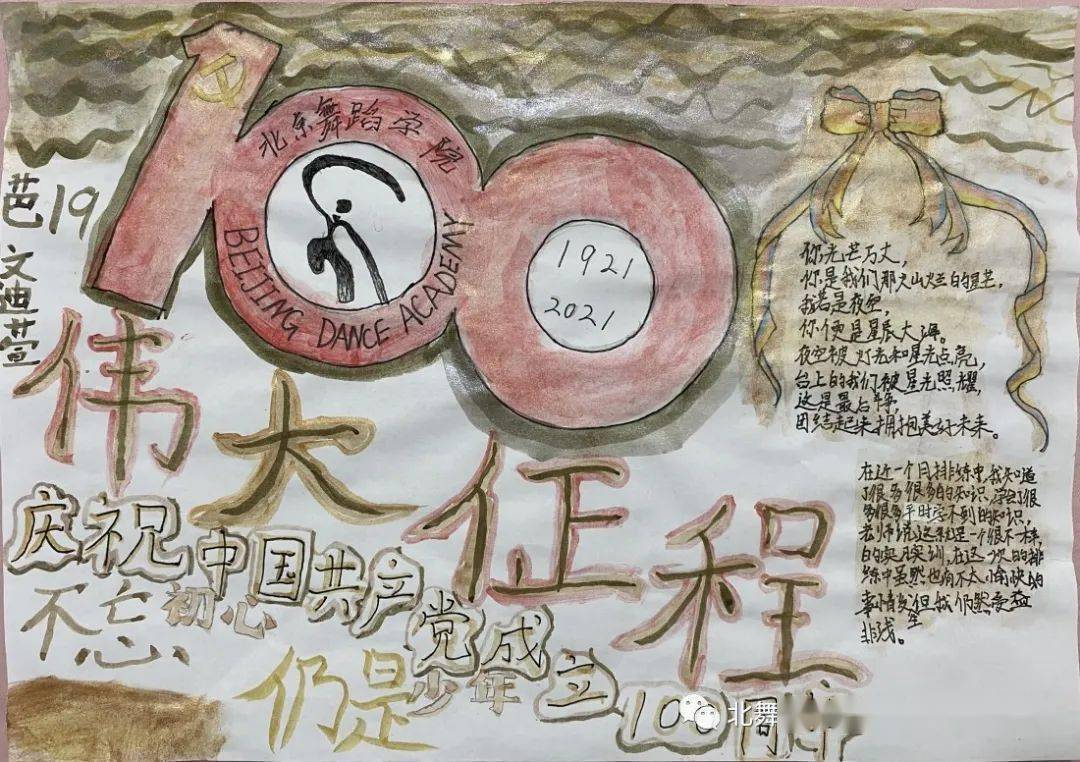 北京舞蹈学院
BEIJING DANCE ACADEMY
1921
2021
芭19
文迪萱
伟大征程
庆祝中国共产党成立100周年
不忘初心
仍是少年
你光芒万丈，
你是我们那火山烂的星芒，
我若是夜空，
你便是星辰大海。
夜空被灯光和星光点亮，
台上的我们被星光照耀，
这是最后
团结起来拥抱美好未来。
在近一个月排练中，我知道
了很多很多的知识，学会了很
多很多平时学不到的知识，
老师说这就是一个很不一样
的实习实训，在这一次的排
练中虽然也有不太愉快的
事情发生但我仍然受益
非浅。
北舞